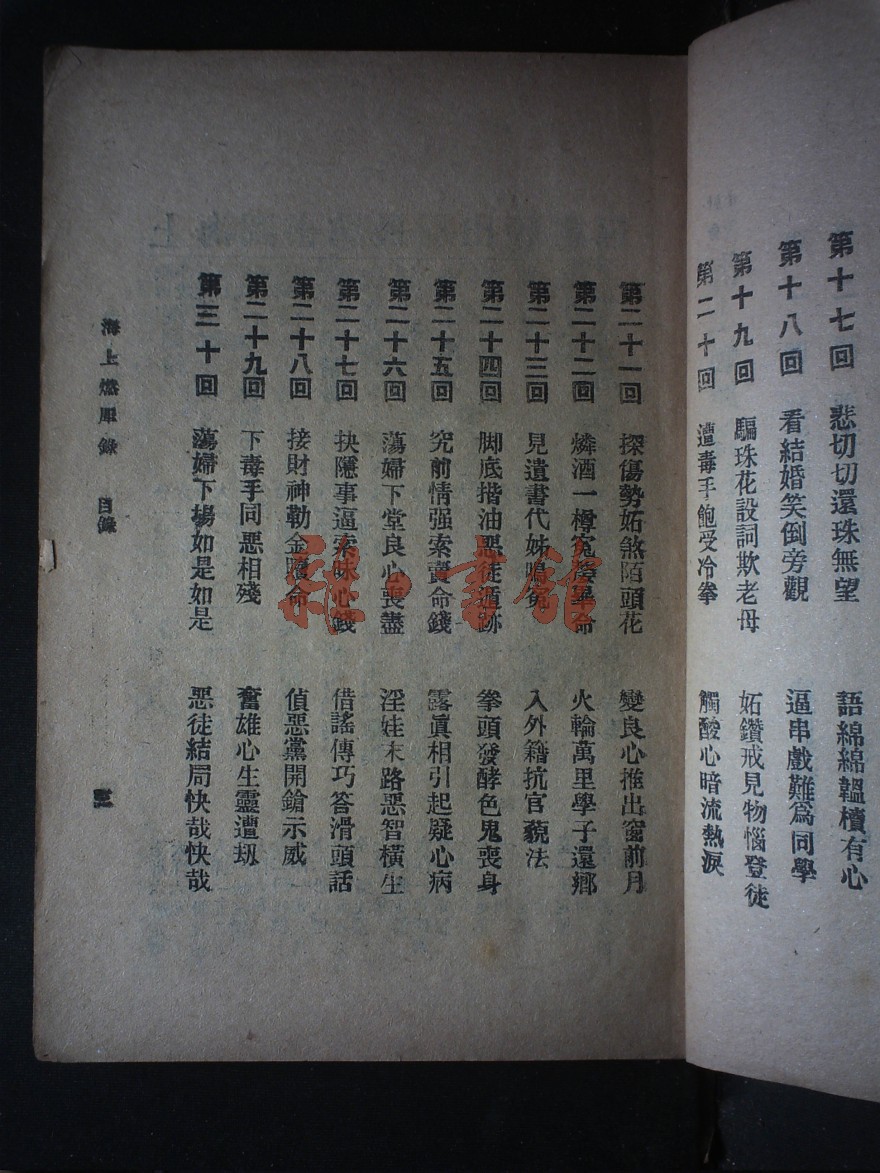 第十七回 悲切切還珠無望 語綿綿韞櫝有心
第十八回 看結婚笑倒旁觀 逼串戲難爲同學
第十九回 騙珠花設詞欺老母 妬鑽戒見物惱登徒
第二十回 遭毒手飽受冷拳 觸酸心暗流熱淚
第二十一回 探傷勢妬煞陌頭花 變良心推出窗前月
第二十二回 燐酒一樽寃孽畢命 火輪萬里學子還鄉
第二十三回 見遺書代姊鳴寃 入外籍抗官藐法
第二十四回 脚底揩油惡徒遁跡 拳頭發酵色鬼喪身
第二十五回 究前情强索賣命錢 露眞相引起疑心病
第二十六回 蕩婦下堂良心喪盡 淫娃末路惡智橫生
第二十七回 抉隱事逼索昧心錢 借謠傳巧答滑頭話
第二十八回 接財神勒金贖命 偵惡黨開鎗示威
第二十九回 下毒手同惡相殘 奮雄心生靈遭刧
第三十回 蕩婦下塲如是如是 惡徒結局快哉快哉
海上燃犀錄 目錄 三
雜·書館